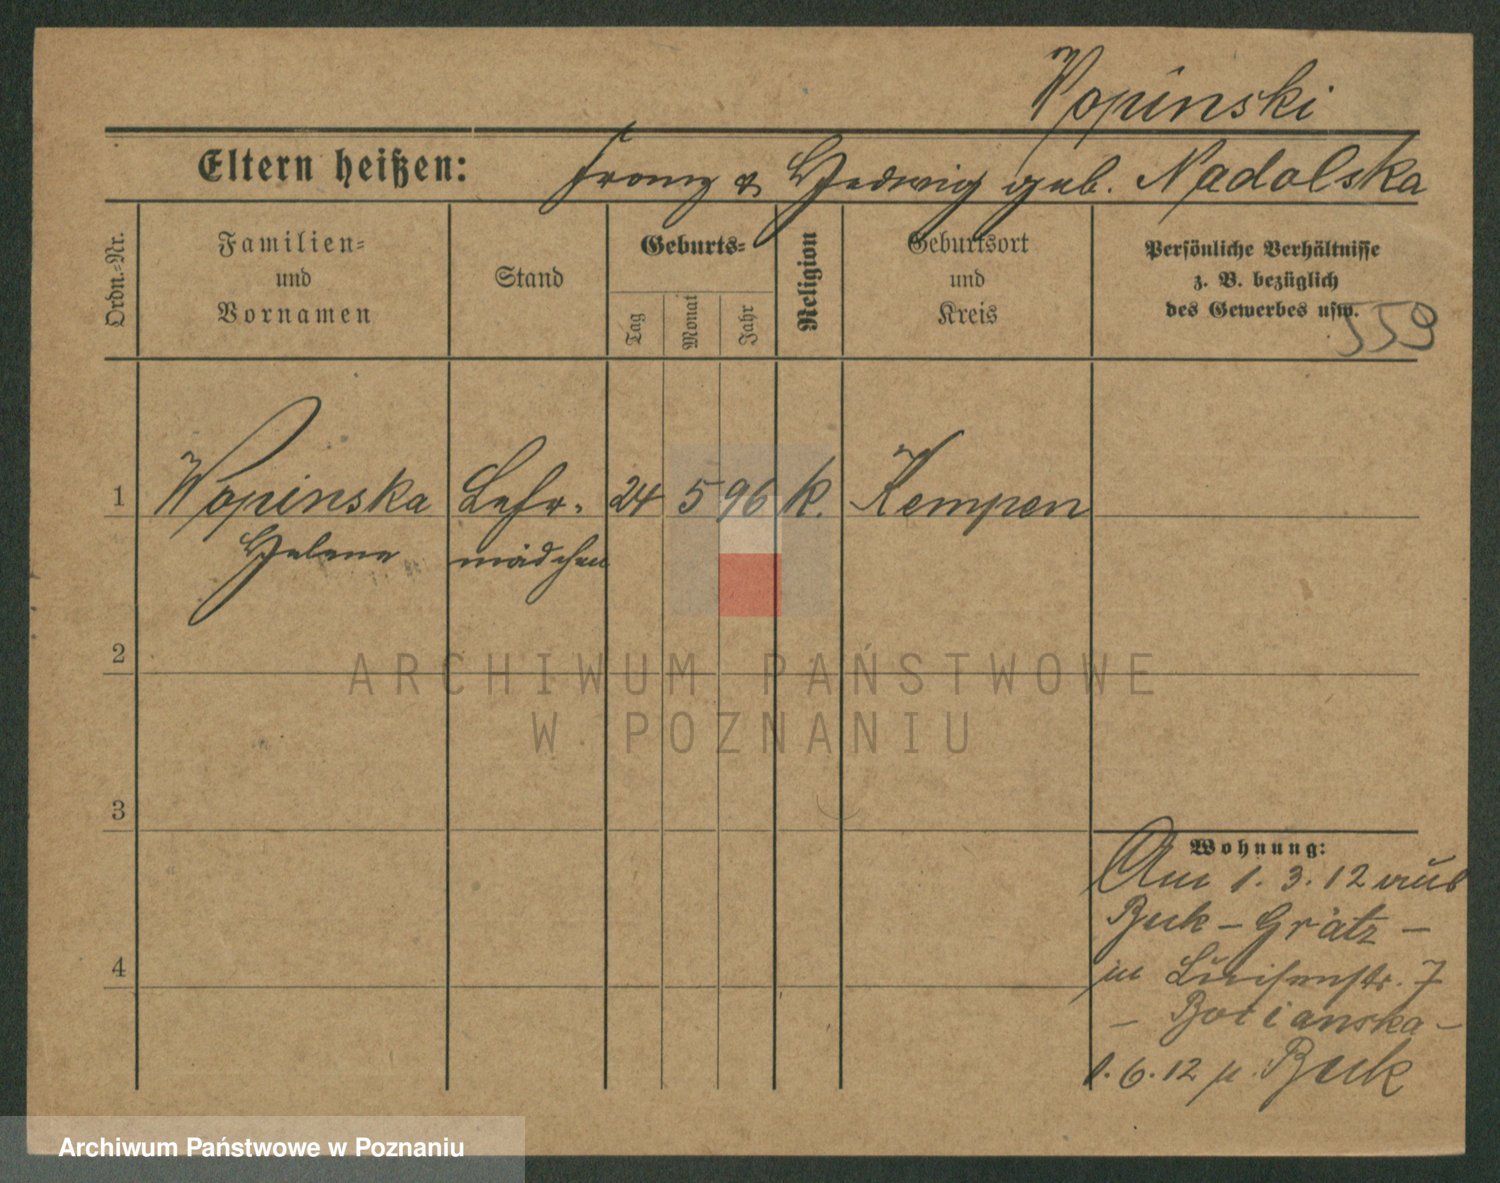 Wopinski
Eltern heißen: Franz & Hedwig geb. Nadolska
Ordn.-Nr.
Familien-
und
Vornamen
Stand
Geburts-
Tag
Monat
Jahr
Religion
Geburtsort
und
Kreis
Persönliche Verhältnisse
z. B. bezüglich
des Gewerbes usw.
559
1 Wopinska Lehr- 24 5 96 k. Kempen
Helene mädchen
2
ARCHIWUM PAŃSTWOWE
W POZNANIU
3
Wohnung:
Am 1. 3. 12 aus
Buk - Grätz -
in Luisenstr. 7
- Bocianska -
1. 6. 12 n. Buk
4
Archiwum Państwowe w Poznaniu